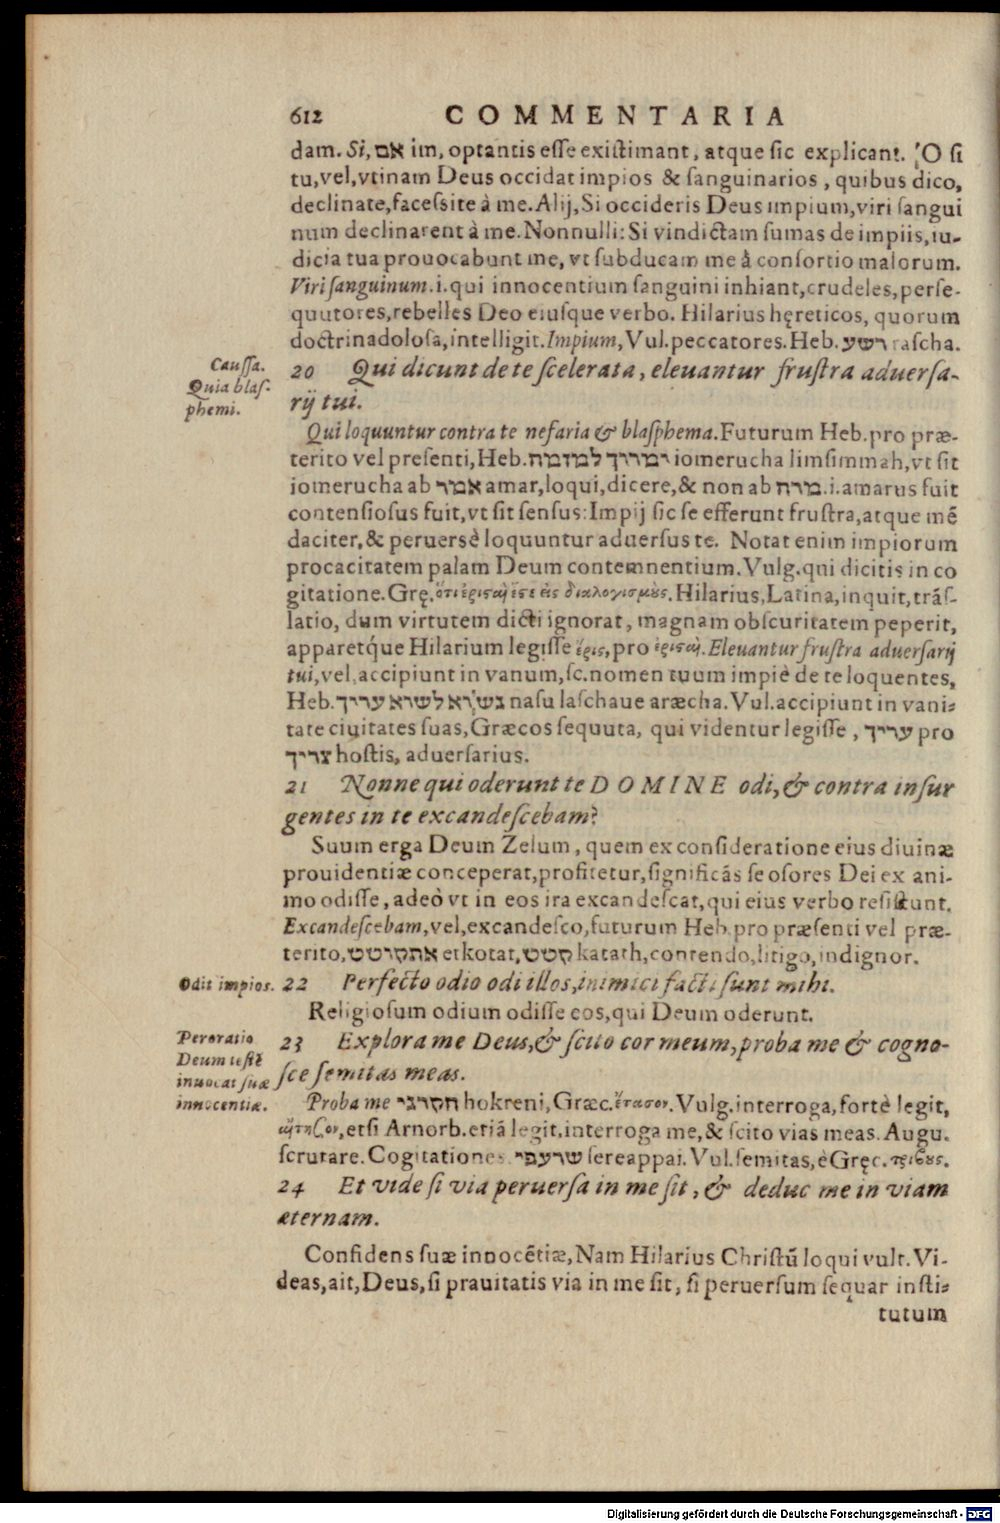 612 COMMENTARIA
dam. Si, אם im, optantis esse existimant, atque sic explicant. O si
tu, vel, vtinam Deus occidat impios & sanguinarios, quibus dico,
declinate, facessite à me. Alij, Si occideris Deus impium, viri sangui
num declinarent à me. Nonnulli: Si vindictam sumas de impiis, iu-
dicia tua prouocabunt me, vt subducam me à consortio malorum.
Viri sanguinum. i. qui innocentium sanguini inhiant, crudeles, perse-
quutores, rebelles Deo eiusque verbo. Hilarius hęreticos, quorum
doctrina dolosa, intelligit. Impium, Vul. peccatores. Heb. רשע rascha.
Caussa.
Quia blas-
phemi.
20 Qui dicunt de te scelerata, eleuantur frustra aduersa-
rij tui.
Qui loquuntur contra te nefaria & blasphema. Futurum Heb. pro præ-
terito vel presenti, Heb. ימרויך למזמה iomerucha limsimmah, vt sit
iomerucha ab אמר amar, loqui, dicere, & non ab מרה. i. amarus fuit
contensiosus fuit, vt sit sensus: Impij sic se efferunt frustra, atque mē
daciter, & peruersè loquuntur aduersus te. Notat enim impiorum
procacitatem palam Deum contemnentium. Vulg. qui dicitis in co
gitatione. Grę. ὅτι ἐρισταὶ ἐστε εἰς διαλογισμοὺς. Hilarius, Latina, inquit, trās-
latio, dum virtutem dicti ignorat, magnam obscuritatem peperit,
apparetq́ue Hilarium legisse ἔρις, pro ἐρισταὶ. Eleuantur frustra aduersarij
tui, vel, accipiunt in vanum, sc. nomen tuum impiè de te loquentes,
Heb. נשׂא לשוא עריך nasu laschaue aræcha. Vul. accipiunt in vani-
tate ciuitates suas, Græcos sequuta, qui videntur legisse, עריך pro
צריך hostis, aduersarius.
21 Nonne qui oderunt te DOMINE odi, & contra insur
gentes in te excandescebam?
Suum erga Deum Zelum, quem ex consideratione eius diuinæ
prouidentiæ conceperat, profitetur, significās se osores Dei ex ani-
mo odisse, adeò vt in eos ira excandescat, qui eius verbo resistunt.
Excandescebam, vel, excandesco, futurum Heb. pro præsenti vel præ-
terito, אתקוטט etkotat, קטט katath, contendo, litigo, indignor.
Odit impios. 22 Perfecto odio odi illos, inimici facti sunt mihi.
Religiosum odium odisse eos, qui Deum oderunt.
Peroratio
Deum testē
inuocat suæ
innocentiæ.
23 Explora me Deus, & scito cor meum, proba me & cogno-
sce semitas meas.
Proba me חקרני hokreni, Græc. ἔτασον. Vulg. interroga, fortè legit,
αἴτησον, etsi Arnorb. etiā legit, interroga me, & scito vias meas. Augu.
scrutare. Cogitationes. שרעפי sereappai. Vul. semitas, è Gręc. τρίβους.
24 Et vide si via peruersa in me sit, & deduc me in viam
æternam.
Confidens suæ innocētiæ, Nam Hilarius Christū loqui vult. Vi-
deas, ait, Deus, si prauitatis via in me sit, si peruersum sequar insti-
tutum
Digitalisierung gefördert durch die Deutsche Forschungsgemeinschaft - DFG